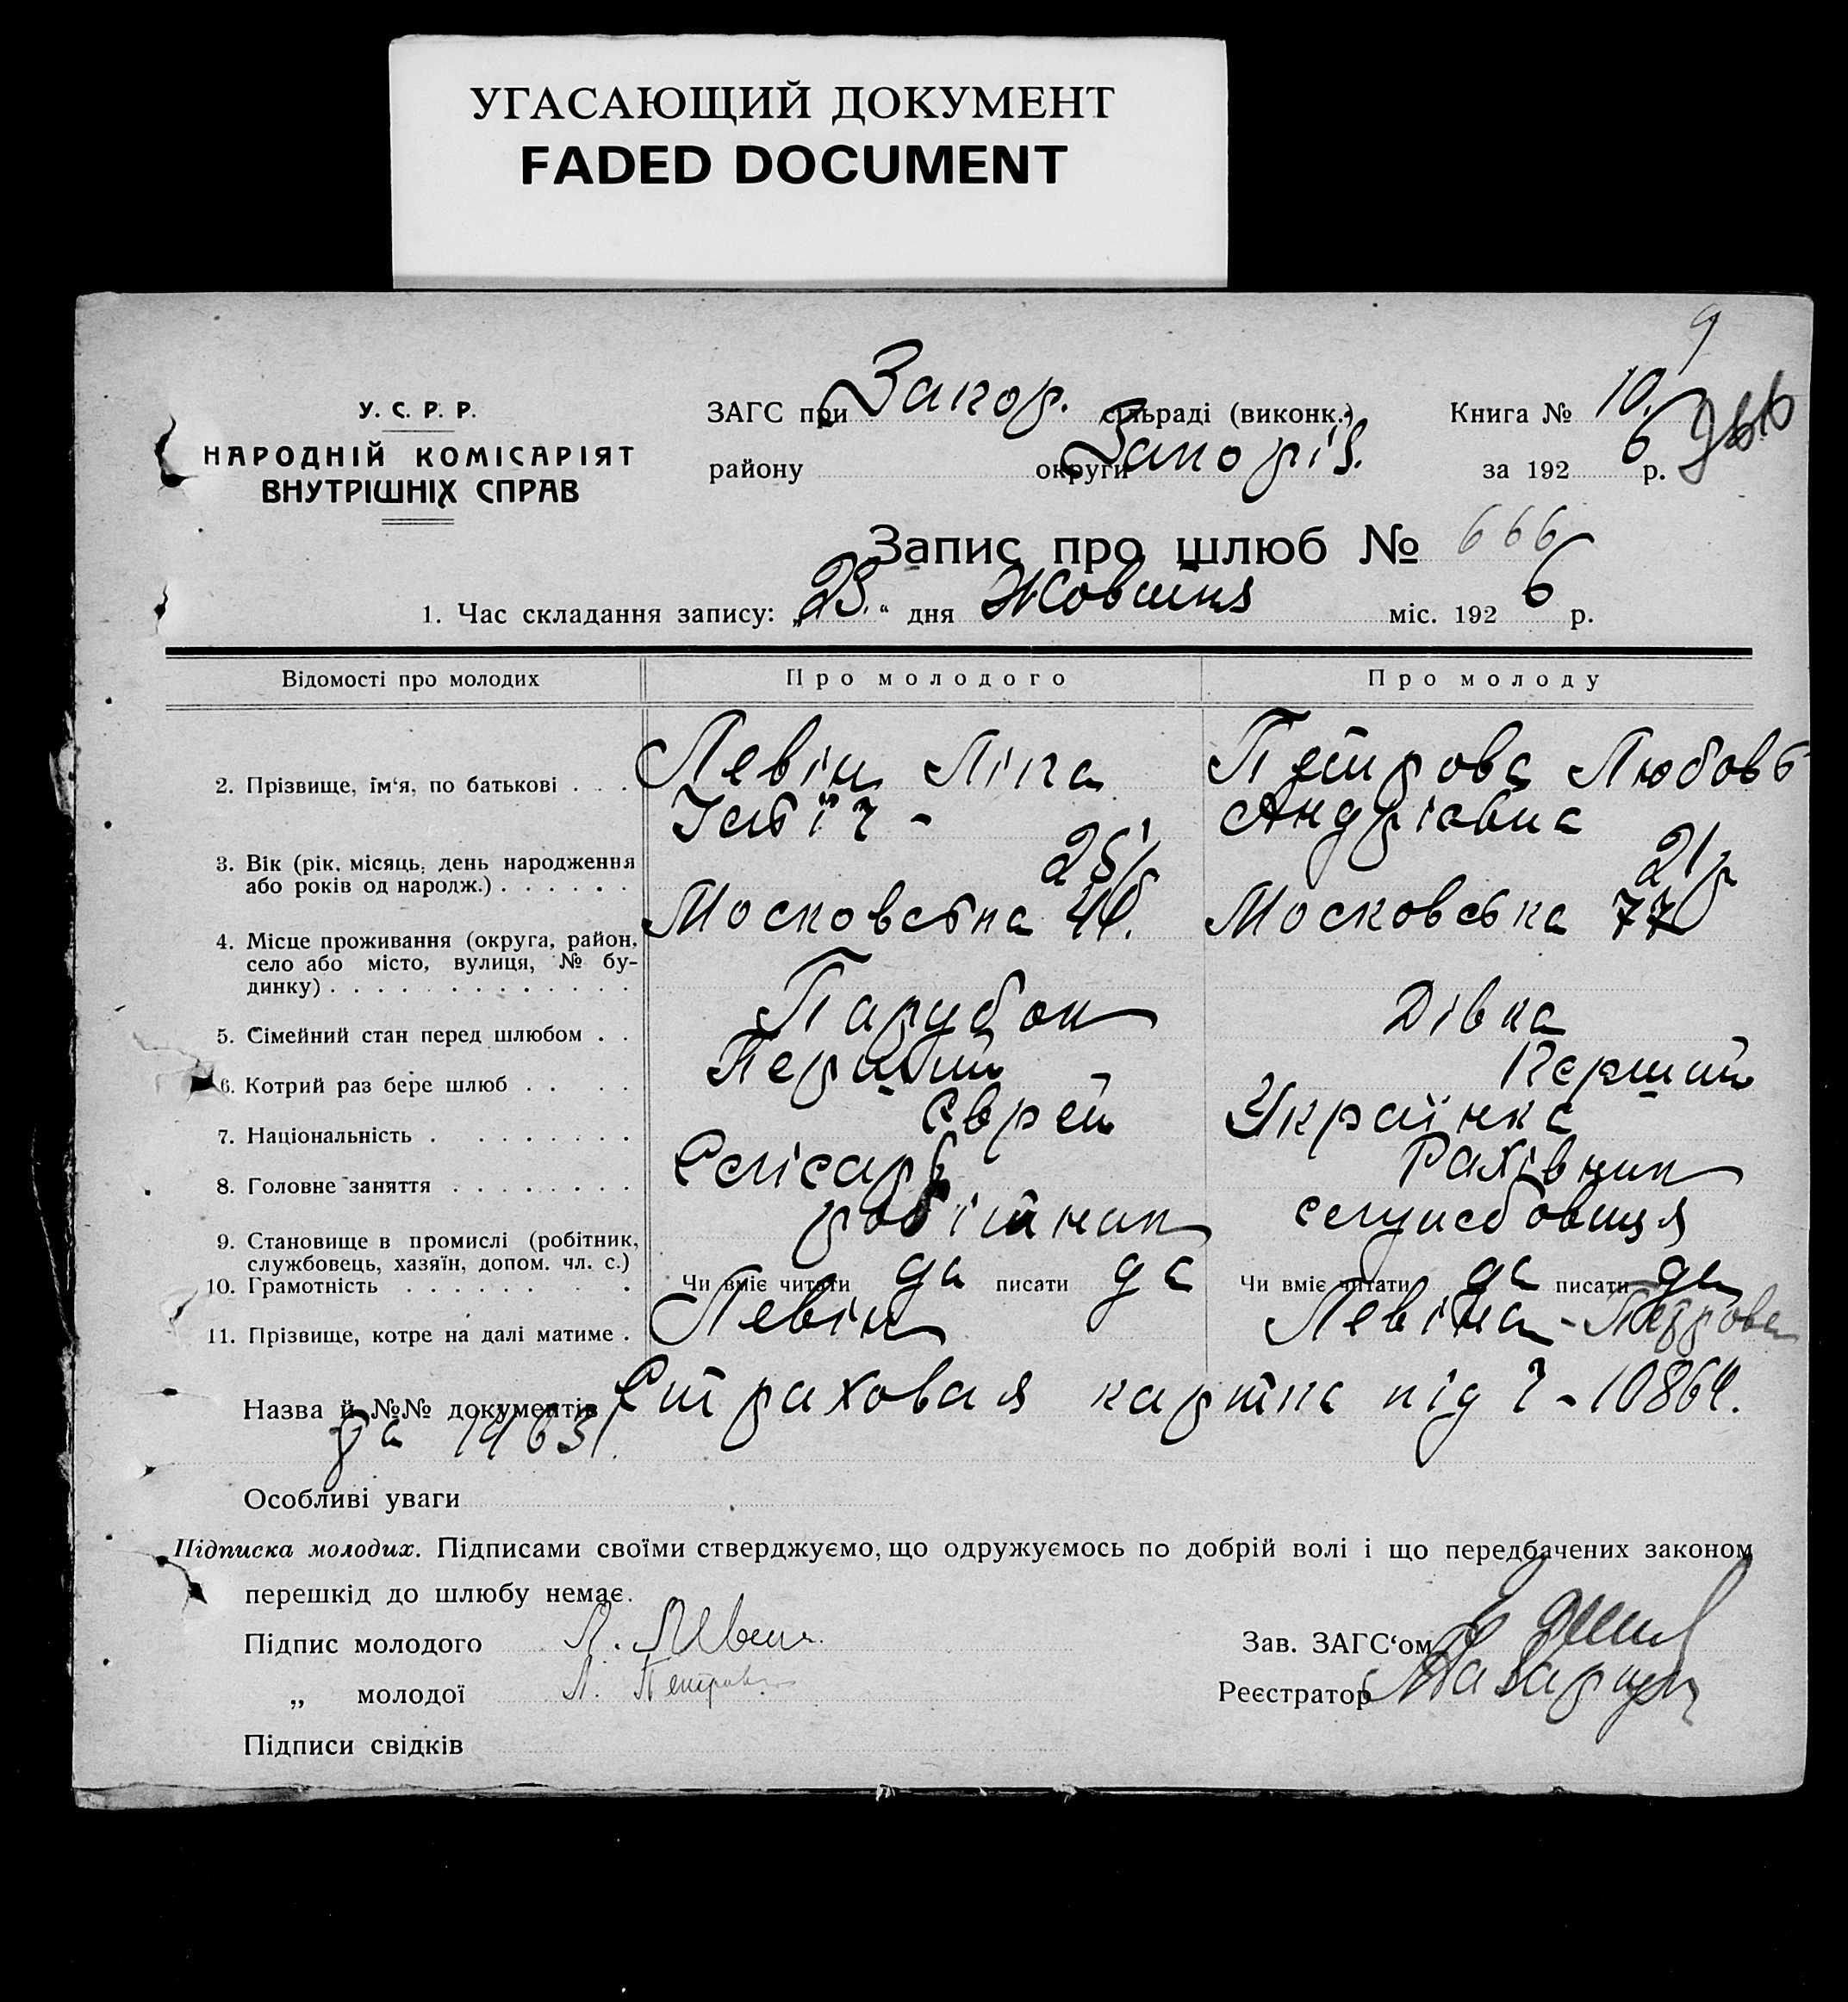 УГАСАЮЩИЙ ДОКУМЕНТ
FADED DOCUMENT
9
У. С. Р. Р.
НАРОДНІЙ КОМІСАРІЯТ
ВНУТРІШНІХ СПРАВ
ЗАГС при Запор. сільраді (виконк.) Книга № 10
району округи Запоріз. за 192 6 р.
Запис про шлюб № 666
1. Час складання запису: „ 23. “ дня Жовтня міс. 192 6 р.
Відомості про молодих Про молодого Про молоду
2. Прізвище, їм‘я, по батькові . . . Левін Ліпа Петрова Любовь
Андріевна
3. Вік (рік, місяць, день народження 21 р
або років од народж.) . . . . . .
4. Місце проживання (округа, район, Московська Московська 77
село або місто, вулиця, № бу-
динку) . . . . . . . . . . . . .
5. Сімейний стан перед шлюбом . . Парубок Дівка
6. Котрий раз бере шлюб . . . . Перший - Перший
7. Національність . . . . . . . . Єврей Українка
8. Головне заняття . . . . . . . . Слісарь Рахівник
9. Становище в промислі (робітник, робітник служсбовиця
службовець, хазяїн, допом. чл. с.)
10. Грамотність . . . . . . . . Чи вміє читати да писати да Чи вміє читати да писати да
11. Прізвище, котре на далі матиме . Левін Левіна - Петрова
Назва й №№ документів Страховая картка під ч - 10864.
да 14631.
Особливі уваги
Підписка молодих. Підписами своїми стверджуємо, що одружуємось по добрій волі і що передбачених законом
перешкід до шлюбу немає.
Підпис молодого Л. Левин. Зав. ЗАГС‘ом
„ молодої Л. Петрова Реєстратор
Підписи свідків